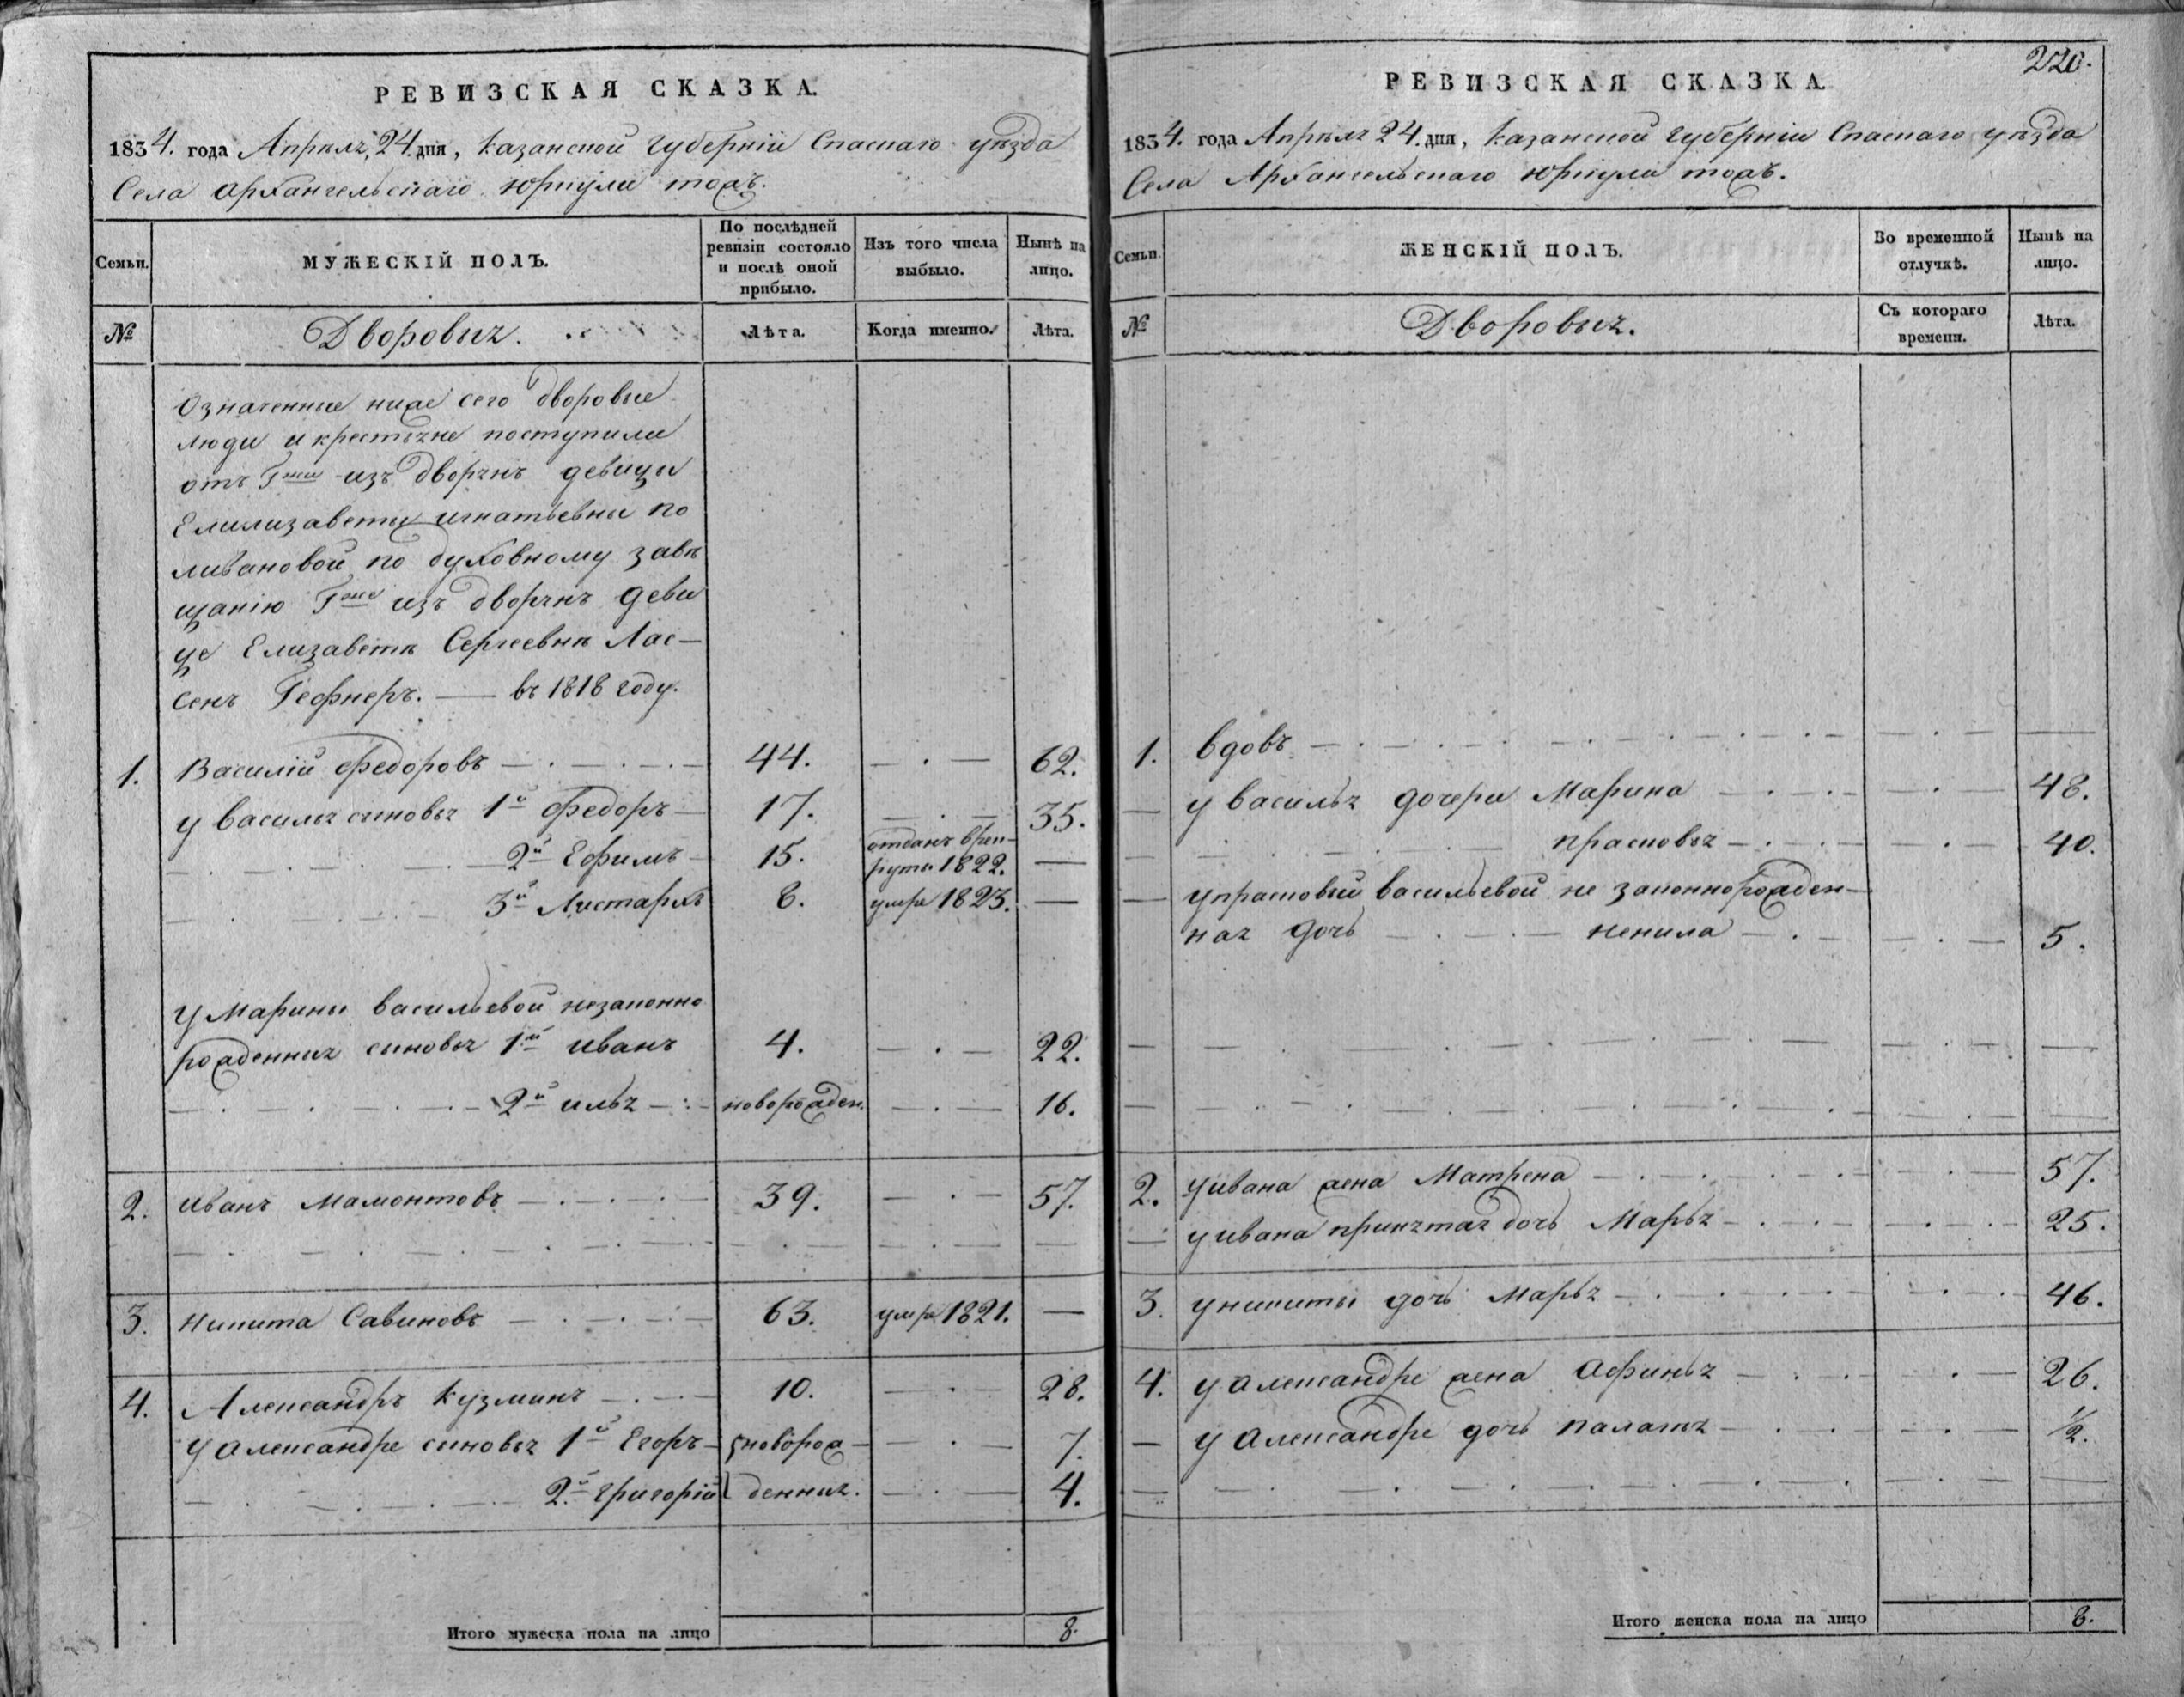 РЕВИЗСКАЯ СКАЗКА.
1834. года Апрѣля, 24. дня, Казанской Губерніи Спаскаго уѣзда
Села Архангельскаго Юркули тожъ.
Семьи.
МУЖЕСКІЙ ПОЛЪ.
По послѣдней ревизіи состояло и послѣ оной прибыло.
Изъ того числа выбыло.
Нынѣ на лицо.
№
Дворовыя.
Лѣта.
Когда именно.
Лѣта.
Означенные ниже сего дворовые
люди и крестьяне поступили
отъ Гжи изъ дворянъ девицы
Елилизаветы игнатьевны по
ливановой по духовному завѣ
щанію Гже изъ дворянъ деви
це Елизаветѣ Сергеевнѣ Лас—
сенъ Гефнеръ. — въ 1818 году.
1. Василій Федоровъ 44. 62.
у василья сыновья 1й Федоръ 17. 35.
2й Ефимъ 15. отданъ врек-
руты 1822. —
3й Листархъ 8. умре 1823. —
у Марины васильевой незаконно
рожденныя сыновья 1й иванъ 4. 22.
2й илья новорожден. 16.
2. иванъ Мамонтовъ 39. 57.
3. никита Савиновъ 63. умре 1821. —
4. Александръ Кузминъ 10. 28.
у александре сыновья 1й Егоръ новорож 7.
2й григорій денныя. 4.
Итого мужеска пола на лицо 8.
220.
РЕВИЗСКАЯ СКАЗКА.
1834. года Апрѣля 24. дня, Казанской губерніи Спаскаго уѣзда
Села Архангельскаго Юркули тожъ.
Семьи.
ЖЕНСКІЙ ПОЛЪ.
Во временной отлучкѣ.
Нынѣ на лицо.
№
Дворовыя.
Съ котораго времени.
Лѣта.
1. вдовъ —
— у василья дочери Марина 48.
прасковья 40.
— упрасковьи васильевой не законнорожден—
ная дочь ненила 5.
2. уивана жена Матрена 57.
— у ивана принятая дочь Марья 25.
3. уникиты дочь Марья 46.
4. у александре жена Афинья 26.
— у александре дочь палагея 1/2.
Итого женска пола на лицо 8.